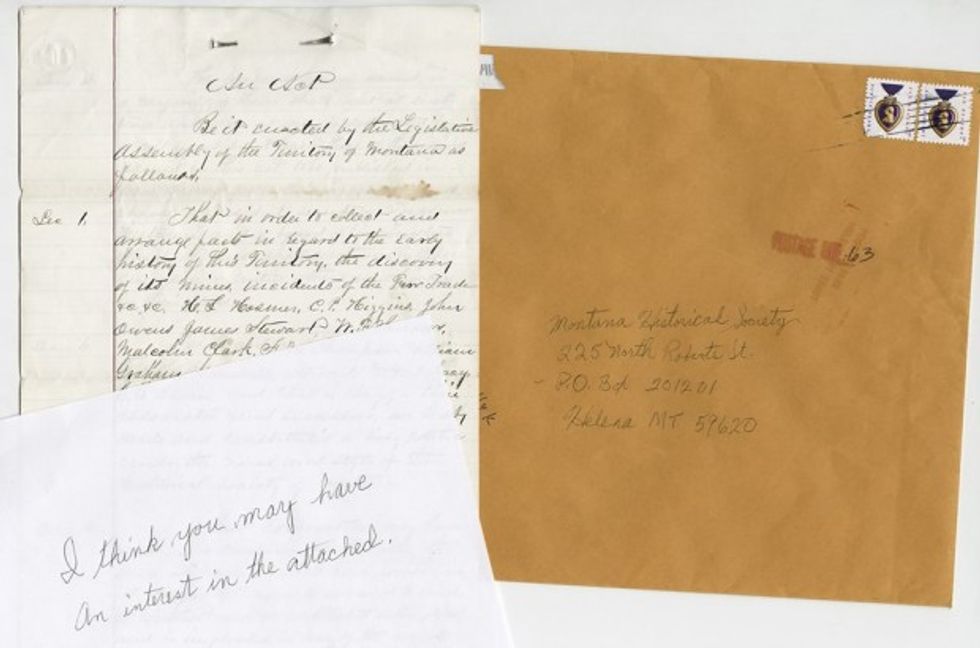 An Act
Be it enacted by the Legislative
Assembly of the Territory of Montana as
follows.
Sec 1. That in order to collect and
arrange facts in regard to the early
history of this Territory, the discovery
of its mines, incidents of the Fur Trade
&c, &c. H. L. Hosmer, C. P. Higgins, John
Owens James Stewart W.
Malcolm Clark,
Graham
I think you may have
an interest in the attached.
POSTAGE DUE .63
Montana Historical Society
225 North Roberts St.
P.O. Box 201201
Helena MT 59620